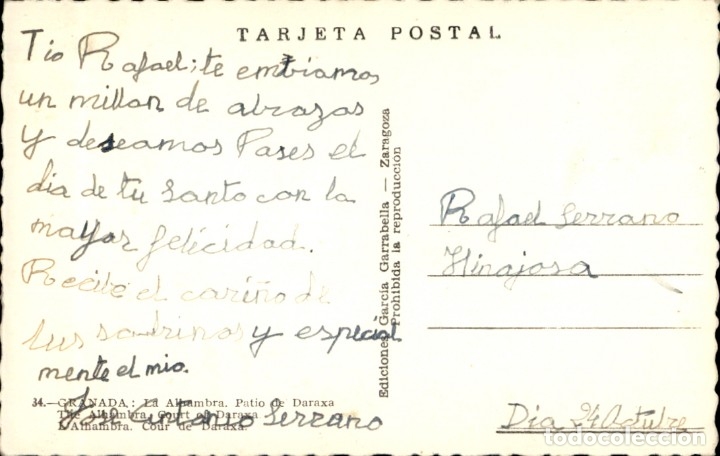 TARJETA POSTAL
Tio Rafael; te embiamos
un millon de abrazos
y deseamos Pases el
dia de tu santo con la
mayor felicidad.
Recibe el cariño de
tus sobrinos y especial
mente el mio.
Antonio Serrano
34.—GRANADA: La Alhambra. Patio de Daraxa
The Alhambra. Court of Daraxa
L'Alhambra. Cour de Daraxa.
Ediciones García Garrabella — Zaragoza
Prohibida la reproducción
Rafael Serrano
Hinajosa
Dia 24 Octubre
todocoleccion